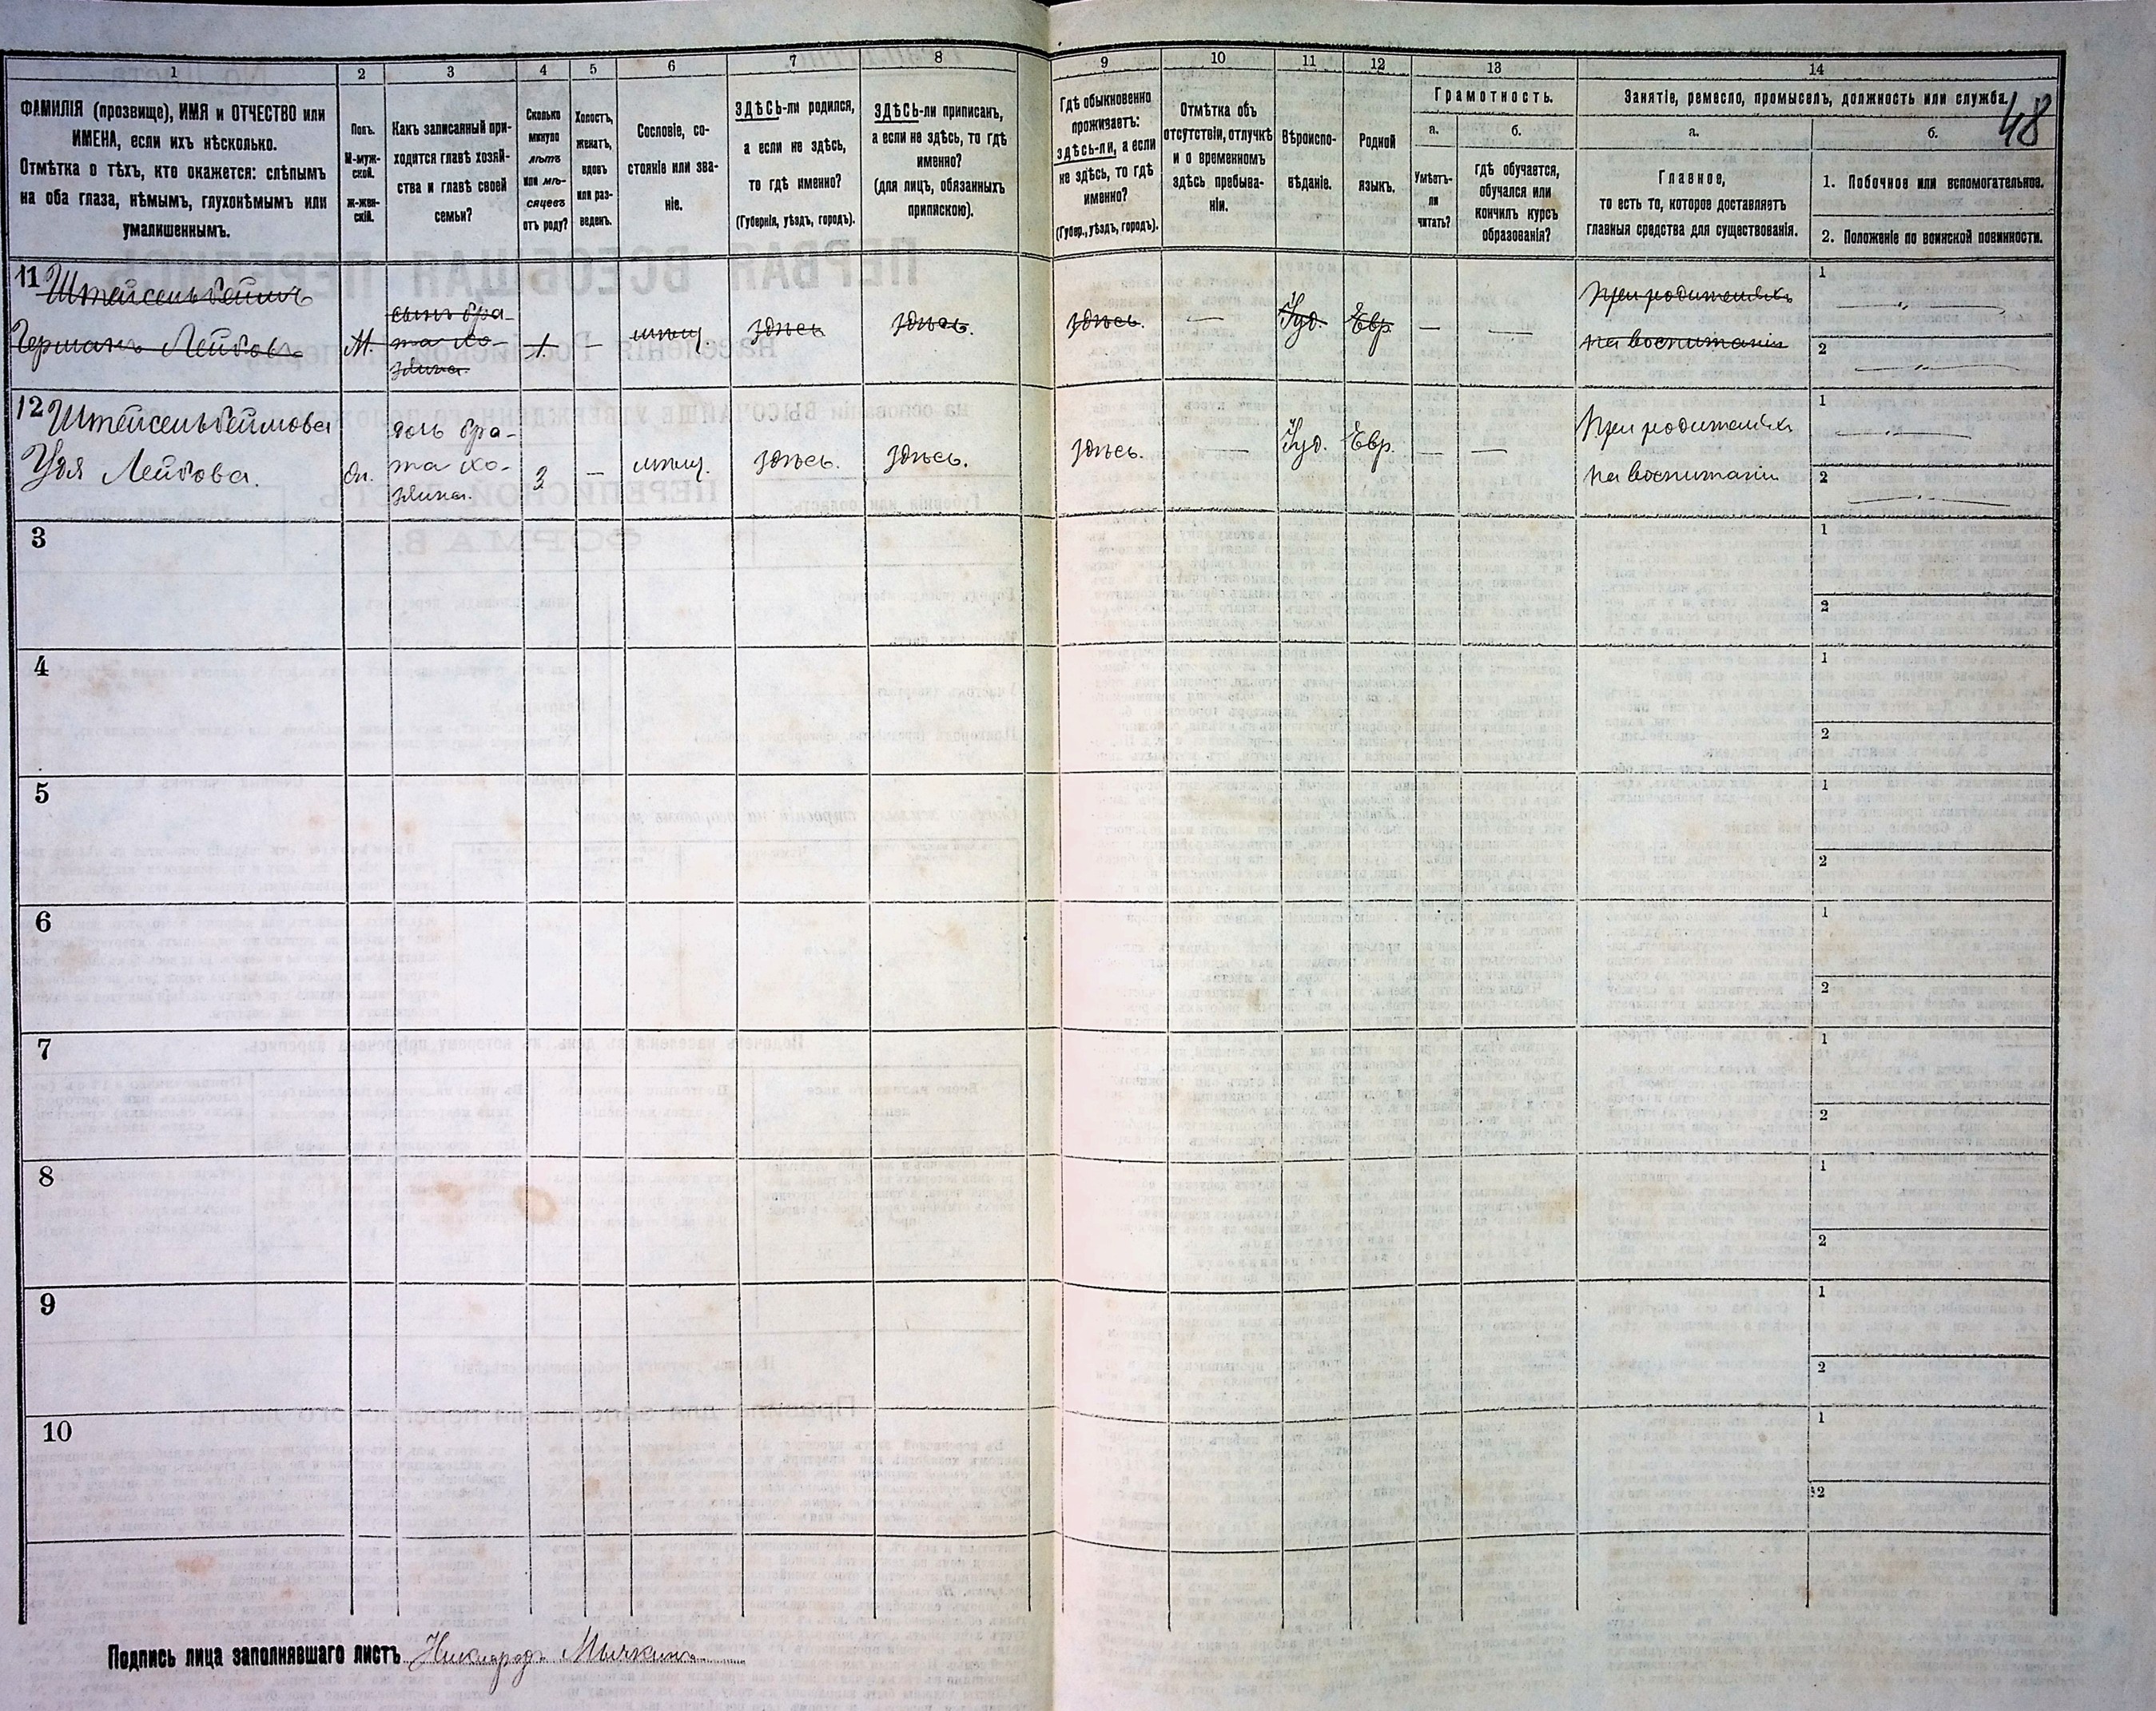 48
1
2
3
4
5
6
7
8
9
10
11
12
13
14
ФАМИЛІЯ (прозвище), ИМЯ и ОТЧЕСТВО или
ИМЕНА, если ихъ нѣсколько.
Отмѣтка о тѣхъ, кто окажется: слѣпымъ
на оба глаза, нѣмымъ, глухонѣмымъ или
умалишеннымъ.
Полъ.
М-муж-
ской.
Ж-жен-
скій.
Какъ записанный при-
ходится главѣ хозяй-
ства и главѣ своей
семьи?
Сколько
минуло
лѣтъ
или мѣ-
сяцевъ
отъ роду?
Холостъ,
женатъ,
вдовъ
или раз-
веденъ.
Сословіе, со-
стояніе или зва-
ніе.
ЗДѢСЬ-ли родился,
а если не здѣсь,
то гдѣ именно?
(Губернія, уѣздъ, городъ).
ЗДѢСЬ-ли приписанъ,
а если не здѣсь, то гдѣ
именно?
(для лицъ, обязанныхъ
припискою).
Гдѣ обыкновенно
проживаетъ:
здѣсь-ли, а если
не здѣсь, то гдѣ
именно?
(Губер., уѣздъ, городъ).
Отмѣтка объ
отсутствіи, отлучкѣ
и о временномъ
здѣсь пребыва-
ніи.
Вѣроиспо-
вѣданіе.
Родной
языкъ.
Грамотность.
а.
Умѣетъ-
ли
читать?
б.
гдѣ обучается,
обучался или
кончилъ курсъ
образованія?
Занятіе, ремесло, промыселъ, должность или служба.
а.
Главное,
то есть то, которое доставляетъ
главныя средства для существованія.
б.
1. Побочное или вспомогательное.
2. Положеніе по воинской повинности.
11 Штейсельбеймъ
Германъ Лейбовъ
М.
сынъ бра-
та хо-
зяина.
1
—
мѣщ.
здѣсь
здѣсь.
здѣсь.
—
Іуд.
Евр.
—
—
При родителяхъ
на воспитаніи
1
2
12 Штейсельбеймова
Удя Лейбова.
дочь бра-
та хо-
зяина.
3
—
мѣщ.
здѣсь.
здѣсь.
здѣсь.
—
Іуд.
Евр.
—
—
При родителяхъ
на воспитаніи
1
2
3
1
2
4
1
2
5
1
2
6
1
2
7
1
2
8
1
2
9
1
2
10
1
2
Подпись лица заполнявшаго листъ